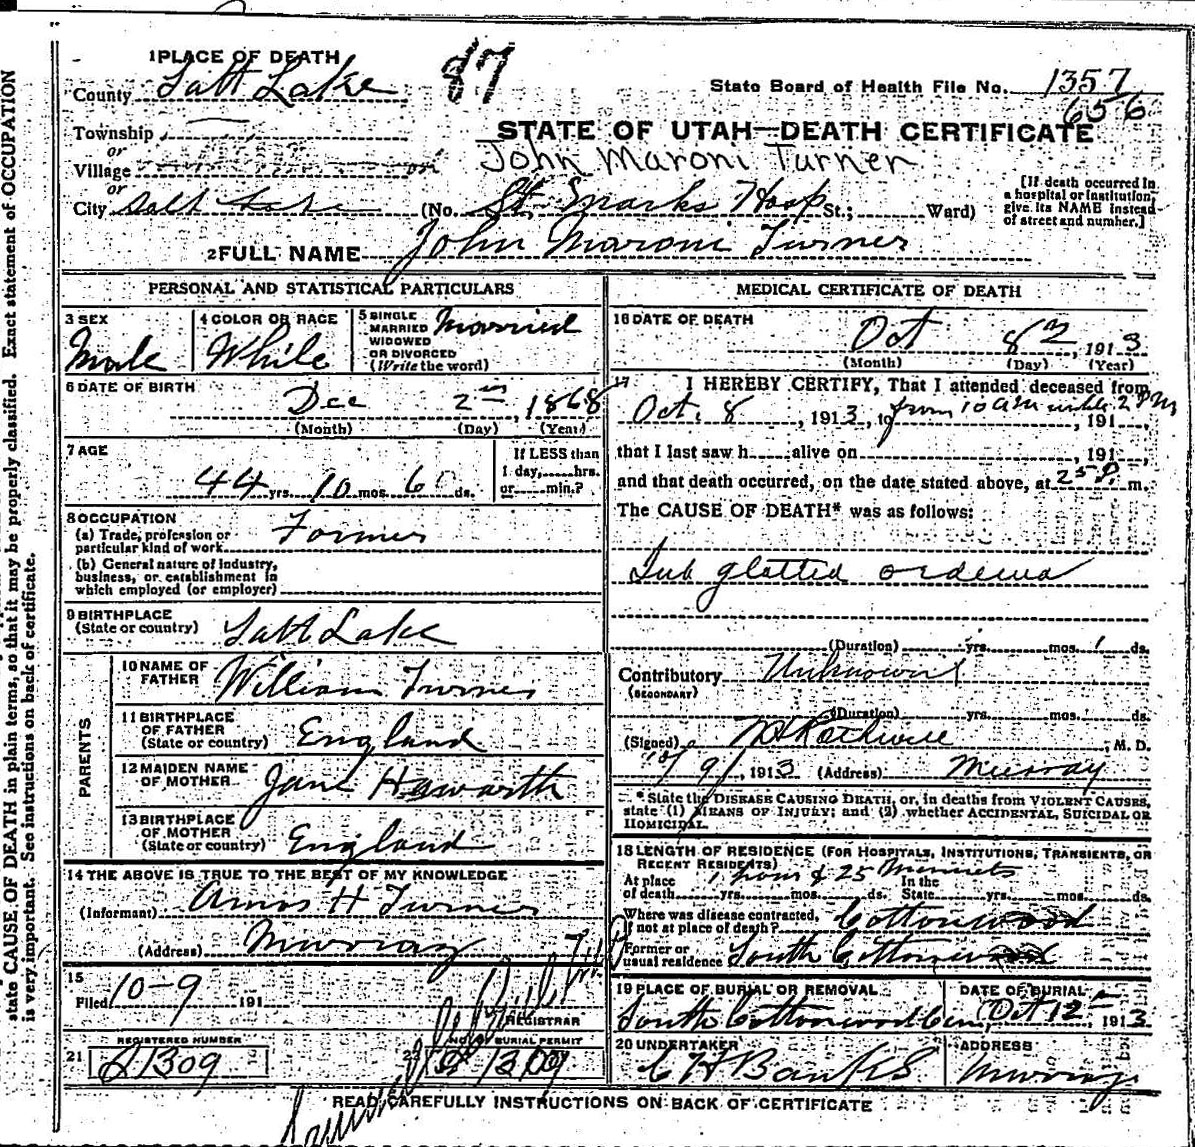 1 PLACE OF DEATH
County Salt Lake
State Board of Health File No. 1357
656
Township
or
Village
or
City Salt Lake
STATE OF UTAH—DEATH CERTIFICATE
John Maroni Turner
(No. St. Marks Hosp St.; Ward)
[If death occurred in
a hospital or institution,
give its NAME instead
of street and number.]
2 FULL NAME John Maroni Turner
PERSONAL AND STATISTICAL PARTICULARS
3 SEX
Male
4 COLOR OR RACE
White
5 SINGLE
MARRIED
WIDOWED
OR DIVORCED
(Write the word)
Married
6 DATE OF BIRTH
Dec 2nd, 1868
(Month) (Day) (Year)
7 AGE
44 yrs. 10 mos. 6 ds.
If LESS than
1 day, hrs.
or min.?
8 OCCUPATION
(a) Trade, profession or
particular kind of work
Farmer
(b) General nature of industry,
business, or establishment in
which employed (or employer)
9 BIRTHPLACE
(State or country) Salt Lake
PARENTS
10 NAME OF
FATHER William Turner
11 BIRTHPLACE
OF FATHER
(State or country) England
12 MAIDEN NAME
OF MOTHER Jane Haworth
13 BIRTHPLACE
OF MOTHER
(State or country) England
14 THE ABOVE IS TRUE TO THE BEST OF MY KNOWLEDGE
(Informant) Amos H Turner
(Address) Murray
15
Filed 10-9 191
REGISTRAR
REGISTERED NUMBER
21 A1309
NO. OF BURIAL PERMIT
22 A1309
MEDICAL CERTIFICATE OF DEATH
16 DATE OF DEATH
Oct 8, 1913
(Month) (Day) (Year)
17 I HEREBY CERTIFY, That I attended deceased from
Oct. 8, 1913, to from 10 am until 2 PM, 191
that I last saw h alive on , 191 ,
and that death occurred, on the date stated above, at 2 25 P. m.
The CAUSE OF DEATH* was as follows:
Sub glotted oedema
(Duration) yrs. mos. 1 ds.
Contributory Unknown
(SECONDARY)
(Duration) yrs. mos. ds.
(Signed) H Rothwell, M. D.
10/9, 1913 (Address) Murray
* State the DISEASE CAUSING DEATH, or, in deaths from VIOLENT CAUSES,
state (1) MEANS OF INJURY; and (2) whether ACCIDENTAL, SUICIDAL OR
HOMICIDAL.
18 LENGTH OF RESIDENCE (FOR HOSPITALS, INSTITUTIONS, TRANSIENTS, OR
RECENT RESIDENTS)
1 hour & 25 Minuets
At place
of death yrs. mos. ds.
In the
State yrs. mos. ds.
Where was disease contracted,
if not at place of death? Cottonwood
Former or
usual residence South Cottonwood
19 PLACE OF BURIAL OR REMOVAL
South Cottonwood Cem
DATE OF BURIAL
Oct 12, 1913
20 UNDERTAKER
C H Banks
ADDRESS
Murray
READ CAREFULLY INSTRUCTIONS ON BACK OF CERTIFICATE
state CAUSE OF DEATH in plain terms, so that it may be properly classified. Exact statement of OCCUPATION
is very important. See instructions on back of certificate.